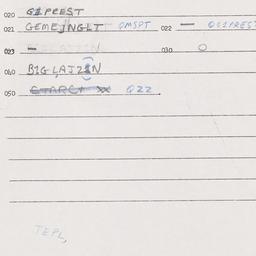 020 G1PREST
021 GEMEJNGLT OMSPT 022 — 001PREST
023 — 030 O
040 BIGLAJZIN
050 022
TEPL,